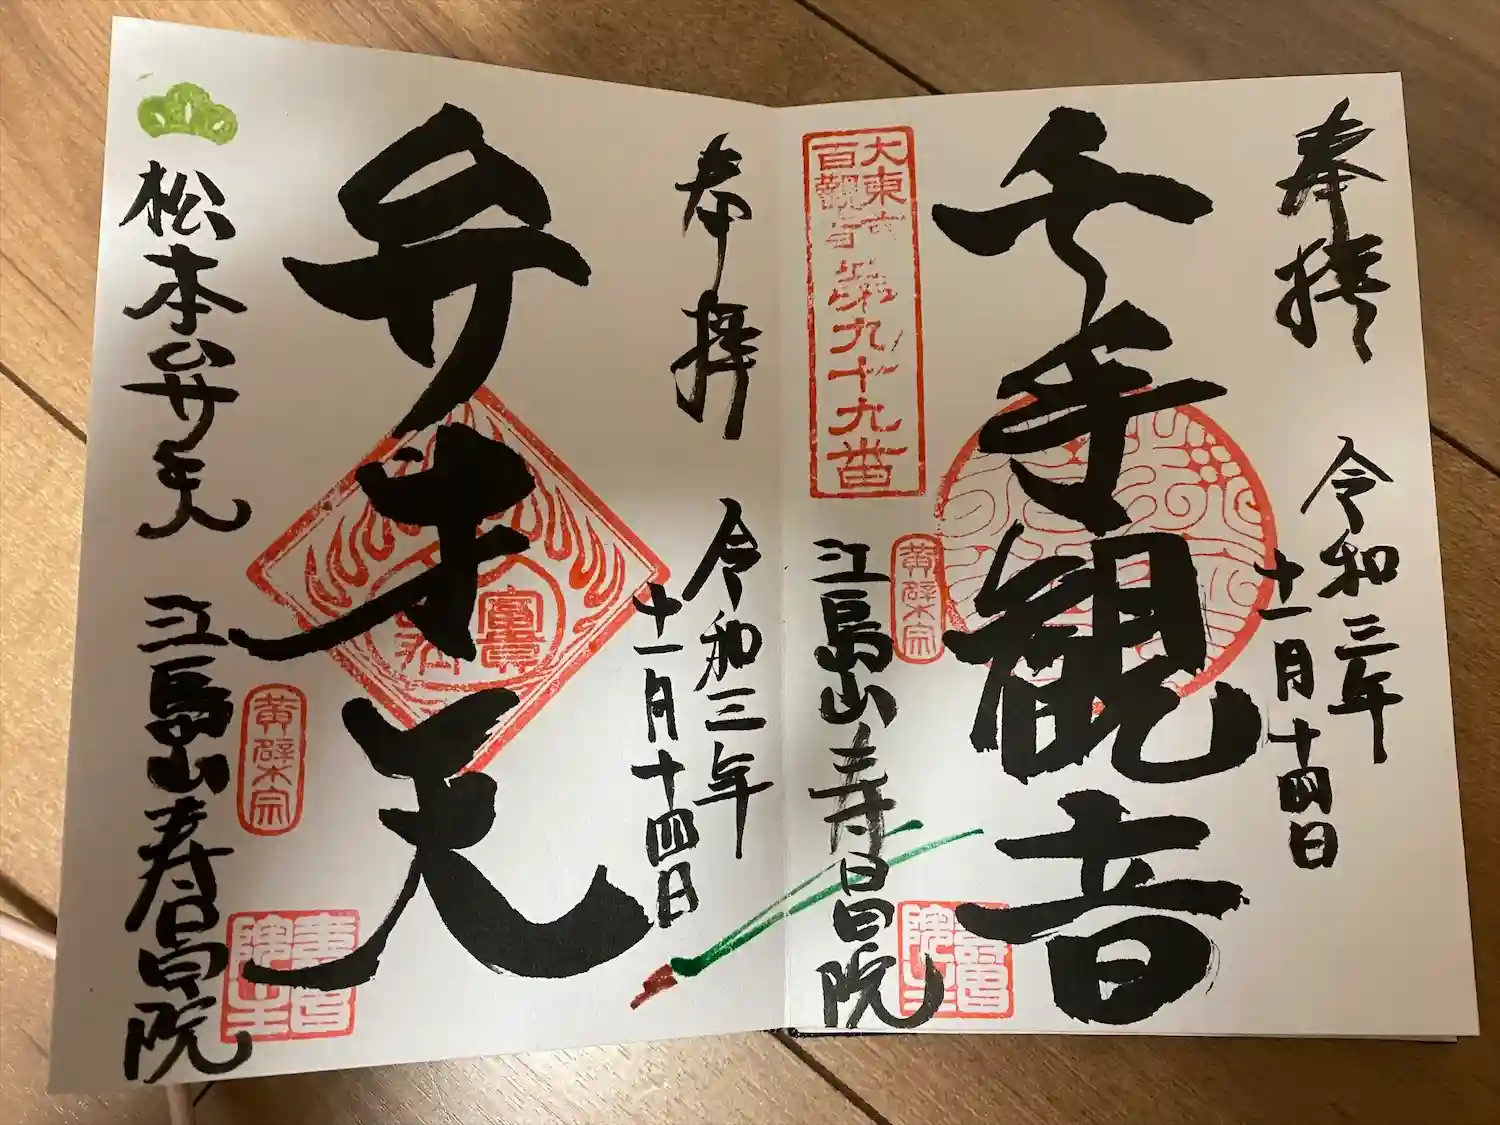 奉拝
令和三年
十一月十四日
千手観音
大東京
百觀音
第九十九番
黄檗宗
江島山寿昌院
奉拝
令和三年
十一月十四日
弁才天
黄檗宗
松本の弁天
江島山寿昌院